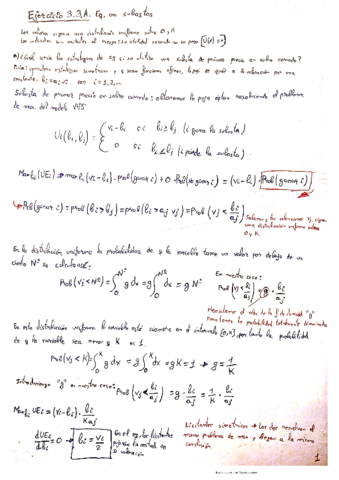 Ejercicio 3.3.A. Eq. con subastas
Los valores siguen una distribución uniforme entre 0 y K
Los individuos son neutrales al riesgo su utilidad cuando no se gana U(0)=0
a) ¿Cuál sería las estrategias de EB si se utiliza una subasta de primer precio en sobre cerrado?
constante. bi = ai·vi con i=1,2,...
Subasta de primer precio en sobre cerrado: obtenemos la puja óptima resolviendo el problema
de max. del modelo VPS
Ui(bi,bj) = { vi-bi si bi≥bj (i gana la subasta)
0 si bi<bj (i pierde la subasta)
Max bi UEi → max bi (vi-bi)·prob(ganar i) + 0·Prob(no ganar i) = (vi-bi)·Prob(ganar i)
Prob(ganar i) = prob(bi>bj) = prob(bi>aj vj) = Prob(vj < bi/aj)
Sabemos que las valoraciones vj siguen
una distribución uniforme entre
0 y K.
En la distribución uniforme la probabilidad de que la variable tome un valor por debajo de un
cierto Nº se calcula así:
Prob(vj<Nº) = ∫₀^Nº g dx = g∫₀^Nº dx = g Nº
En nuestro caso:
Prob(vj < bi/aj) = g · bi/aj
Necesitamos el valor de la f. de densidad "g"
para tener la probabilidad totalmente determinada
En esta distribución uniforme la variable está siempre en el intervalo [0,K], por tanto la probabilidad
de que la variable sea menor que K es 1.
Prob(vj<K) = ∫₀^K g dx = g∫₀^K dx = gK = 1 → g = 1/K
Introducimos "g" en nuestro caso: Prob(vj < bi/aj) = g · bi/aj = 1/K · bi/aj
Max bi UEi = (vi-bi) · bi/K aj
dUEi/dbi = 0 → bi = vi/2
En el equilibrio los licitantes
pujan la mitad de
su valoración
Licitantes simétricos → Los dos resuelven el
mismo problema de max y llegan a la misma
conclusión.
1